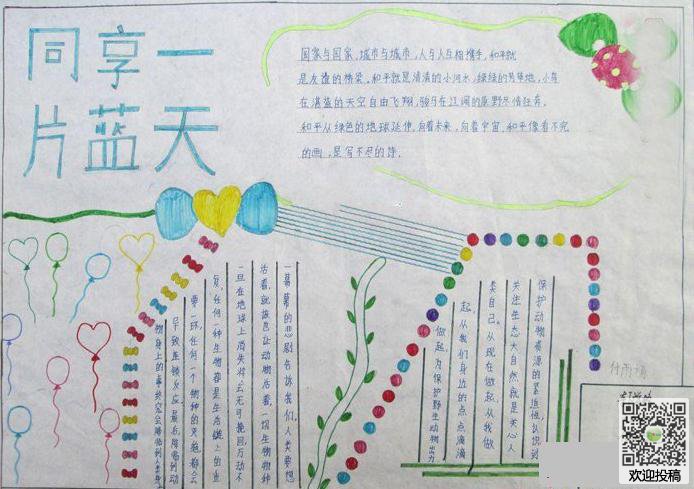 同享一
片蓝天
国家与国家,城市与城市,人与人互相携手,和平就
是友谊的桥梁,和平就是清清的小河水,绿绿的芳草地,小鸟
在湛蓝的天空自由飞翔,骏马在辽阔的原野尽情狂奔,
和平从绿色的地球延伸,向着未来,向着宇宙,和平像看不完
的画,是写不尽的诗.
一幕幕的悲剧告诉我们,人类要想
活着,就该也让动物活着,一切生物物种
一旦在地球上消失将会无可挽回万劫不
复,任何一种生物都是生态链上的重
要一环,任何一个物种的灭绝都会
导致连锁反应最后降临到动
保护动物资源的紧迫感认识到
关注生态大自然就是关心人
类自己,从现在做起,从我做
起,从我们身边的点点滴滴
做起,为保护野生动物出力
欢迎投稿